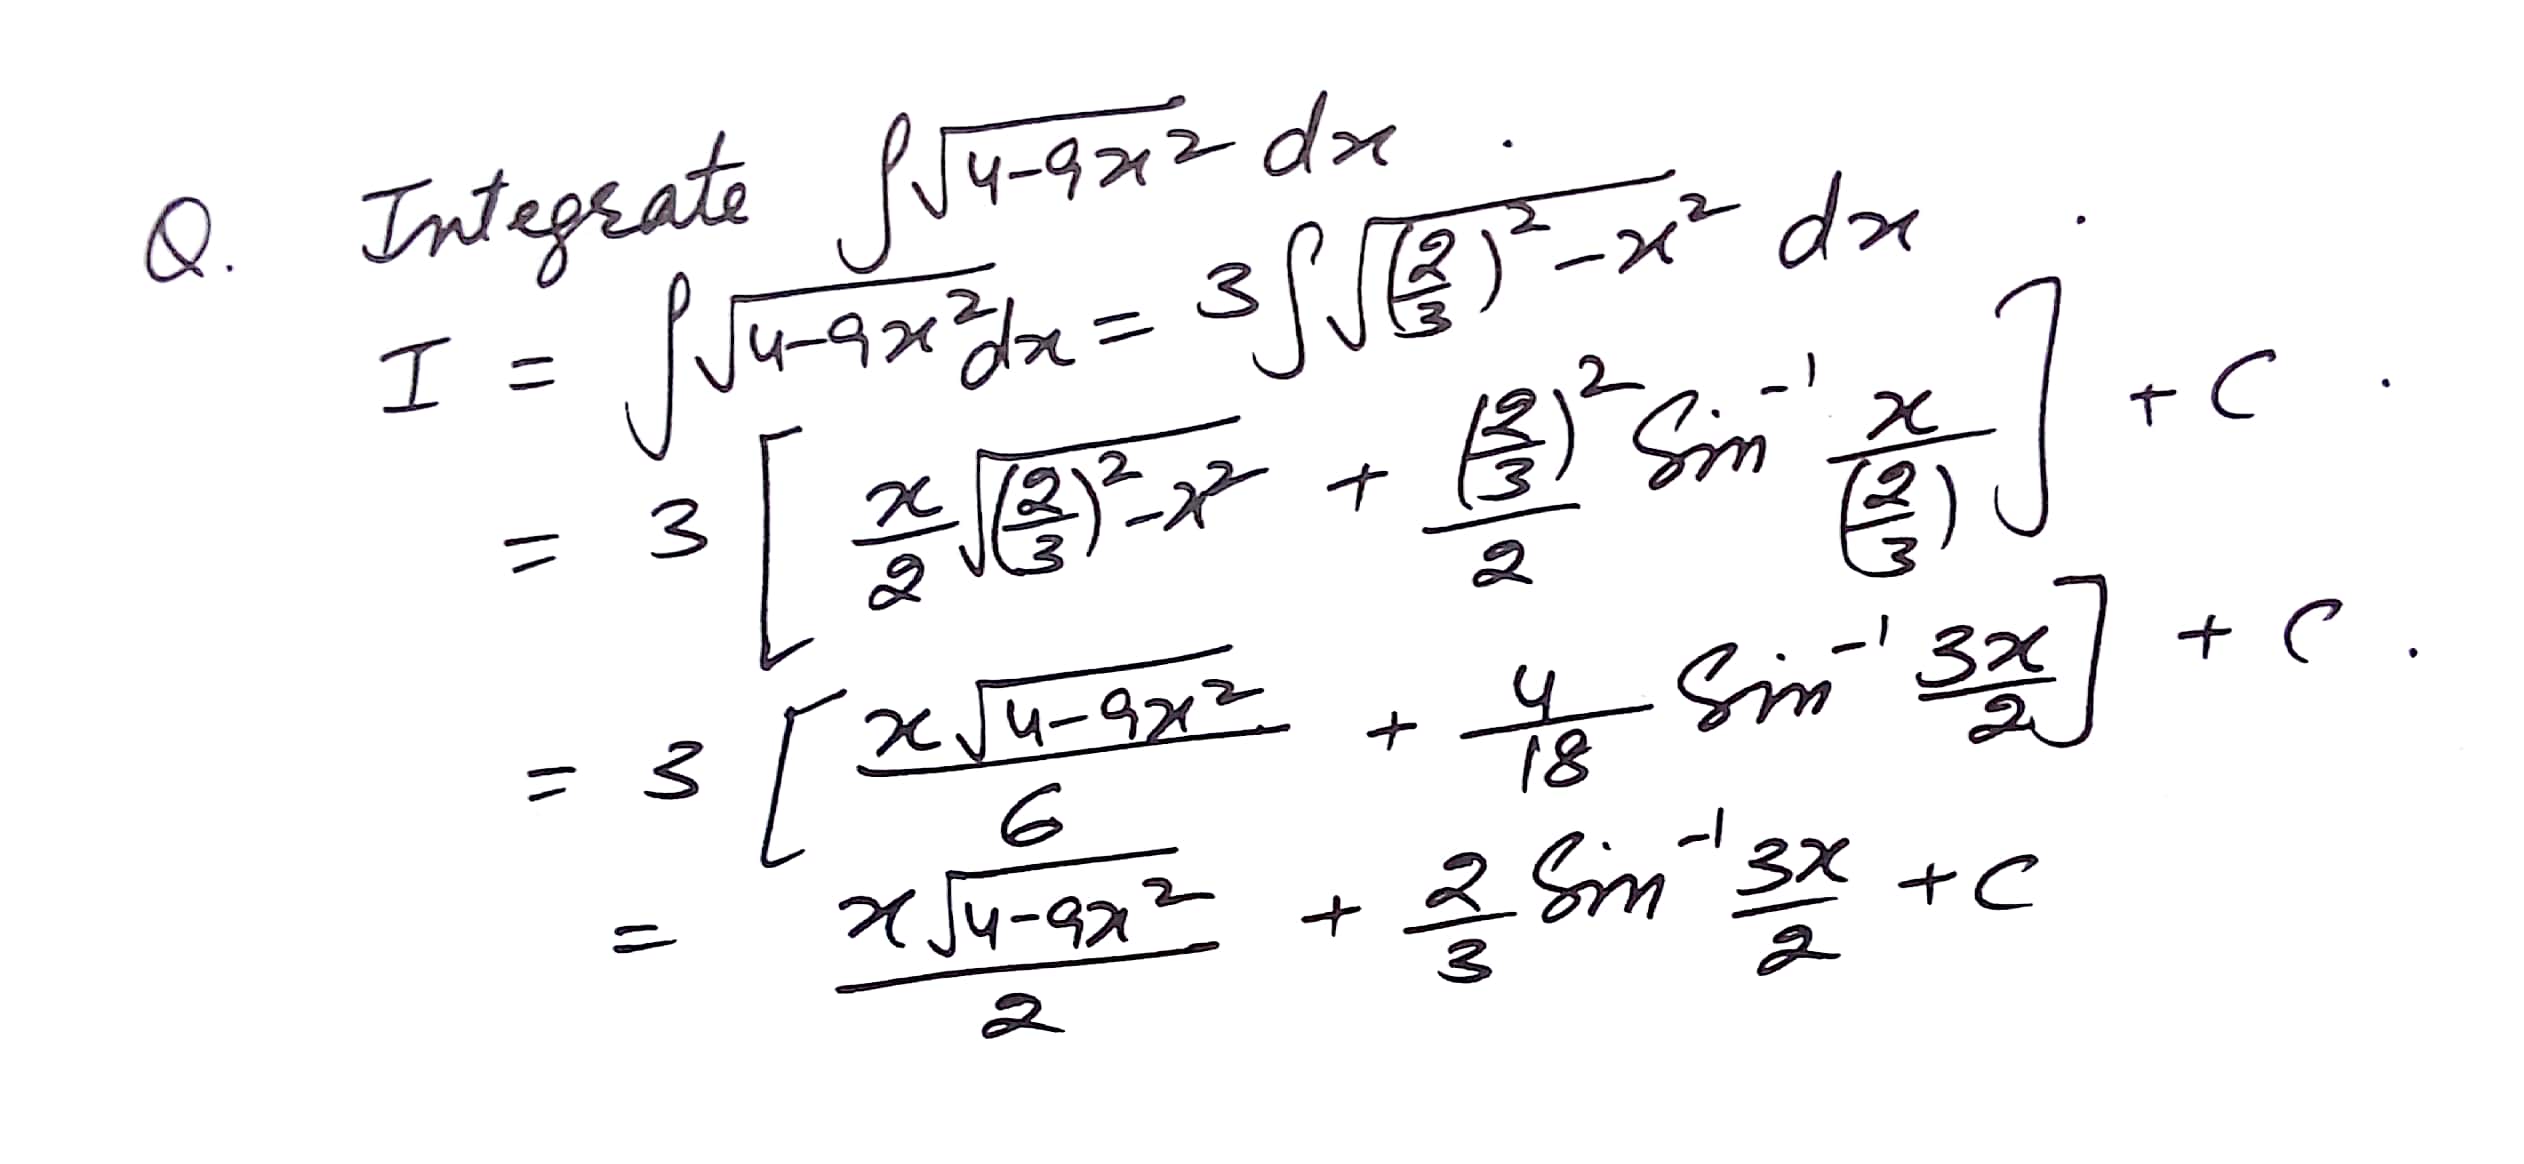 Q. Integrate ∫√(4-9x²) dx .
I = ∫√(4-9x²) dx = 3∫√((2/3)²-x²) dx .
= 3 [ x/2 √((2/3)²-x²) + (2/3)²/2 Sin⁻¹ x/(2/3) ] + C .
= 3 [ x√(4-9x²)/6 + 4/18 Sin⁻¹ 3x/2 ] + C .
= x√(4-9x²)/2 + 2/3 Sin⁻¹ 3x/2 + C